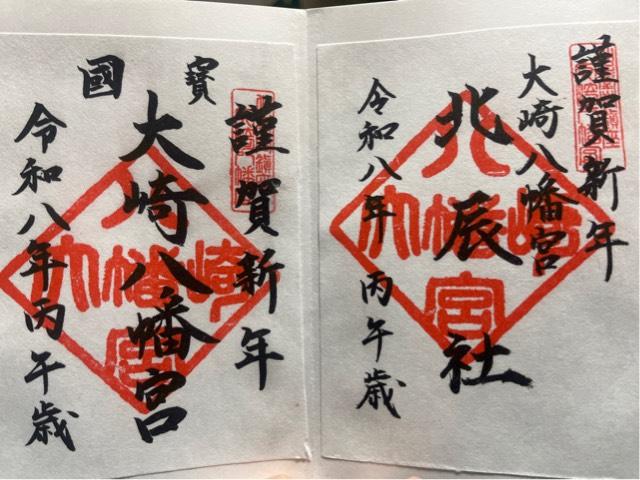 謹賀新年
大崎八幡宮
北辰社
令和八年 丙午歳
八幡宮大崎
謹賀新年
國寳
大崎八幡宮
令和八年丙午歳
八幡宮大崎